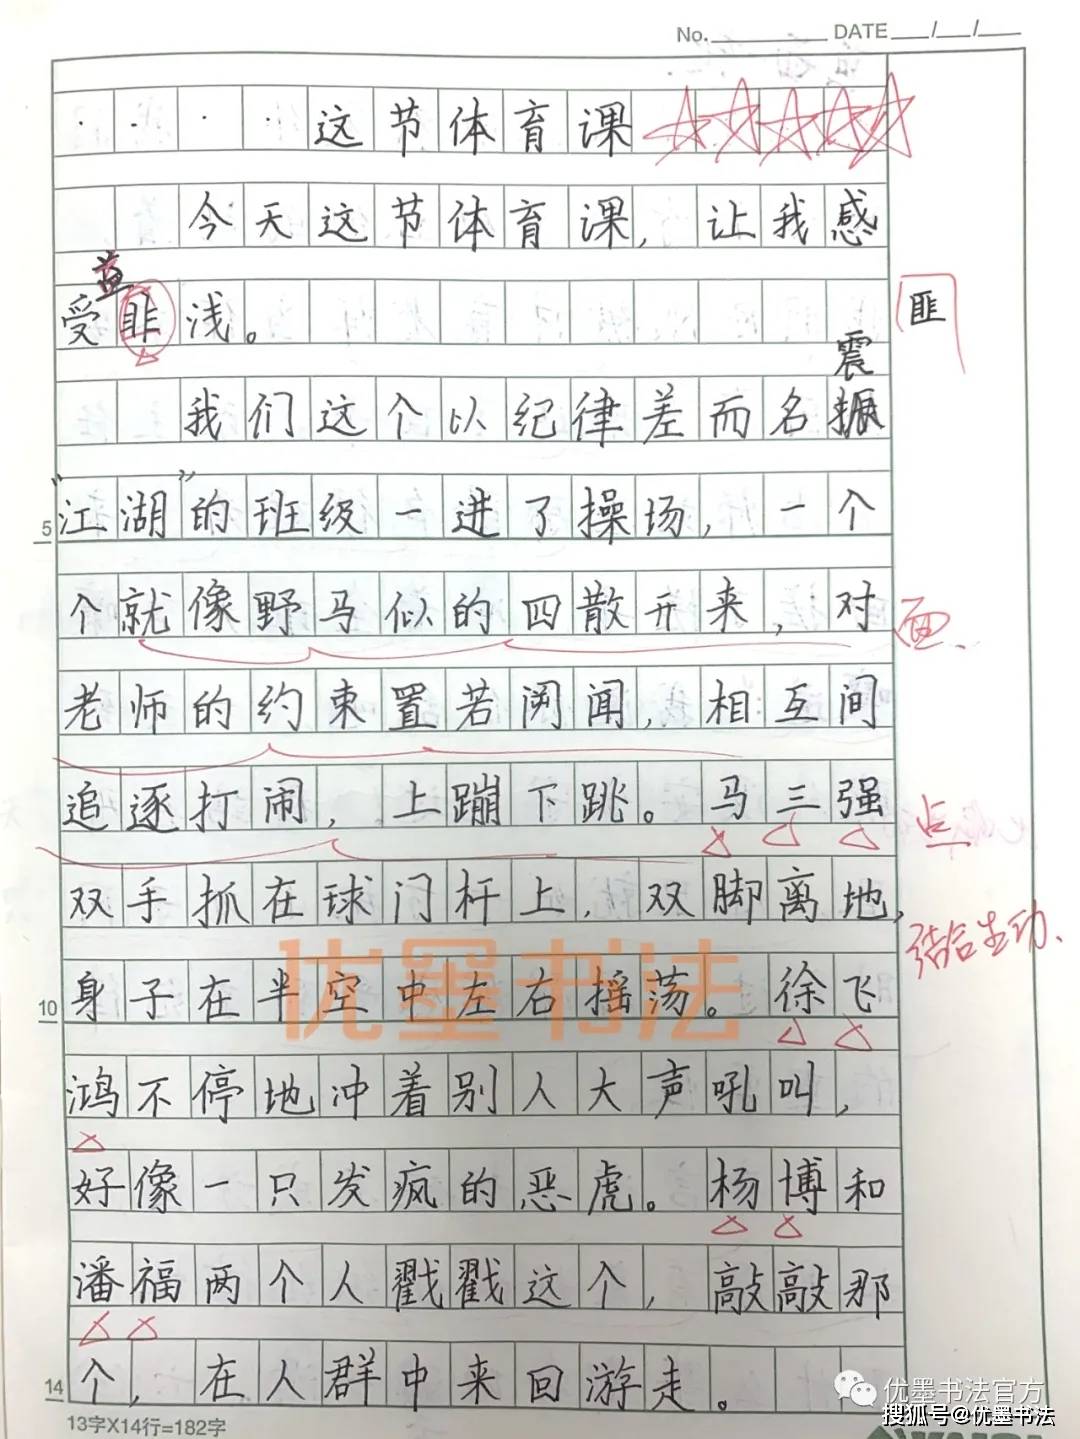 No. DATE / /
这节体育课
今天这节体育课，让我感
益
受韭浅。
匪
震
我们这个以纪律差而名振
"江湖"的班级一进了操场，一个
5
个就像野马似的四散开来，对
面、
老师的约束置若罔闻，相互间
追逐打闹，上蹦下跳。马三强
点
双手抓在球门杆上，双脚离地，
结合生动、
身子在半空中左右摇荡。徐飞
10
鸿不停地冲着别人大声吼叫，
好像一只发疯的恶虎。杨博和
潘福两个人戳戳这个，敲敲那
个，在人群中来回游走。
14
13字X14行=182字
优墨书法
优墨书法官方
搜狐号@优墨书法